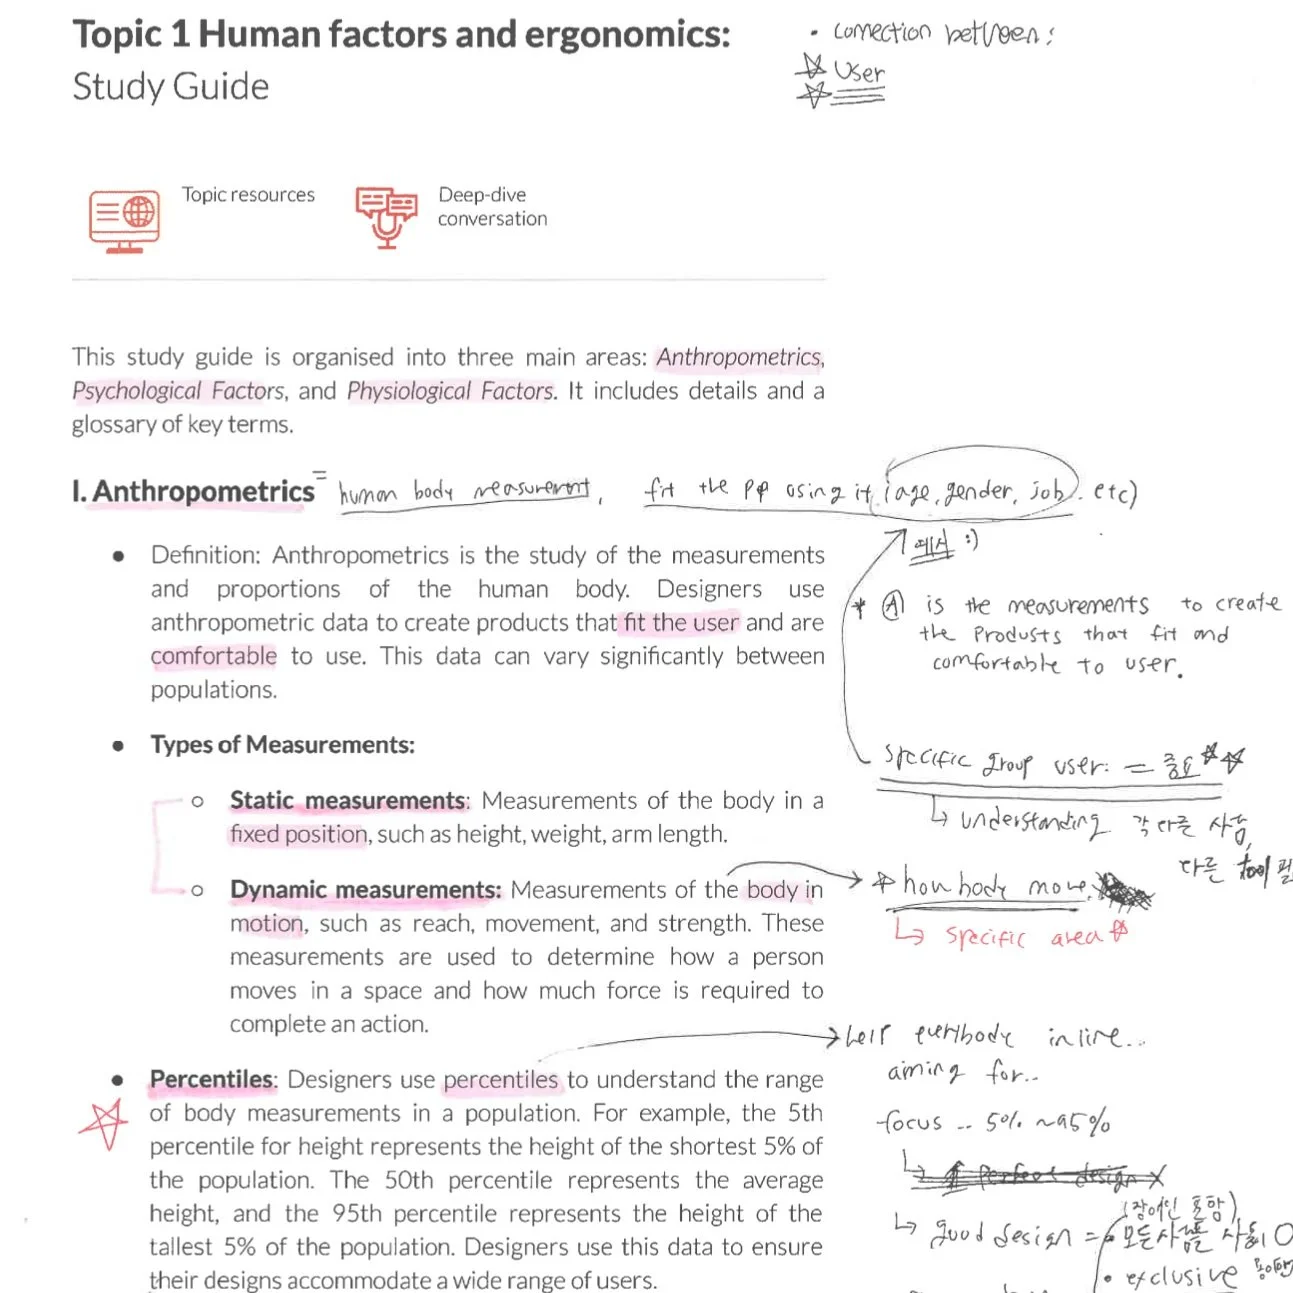 Topic 1 Human factors and ergonomics:
Study Guide
• connection between:
User
Topic resources
Deep-dive
conversation
This study guide is organised into three main areas: Anthropometrics,
Psychological Factors, and Physiological Factors. It includes details and a
glossary of key terms.
I. Anthropometrics = human body measurement, fit the PP using it (age, gender, job. etc)
예시 :)
• Definition: Anthropometrics is the study of the measurements
and proportions of the human body. Designers use
anthropometric data to create products that fit the user and are
comfortable to use. This data can vary significantly between
populations.
* Ⓐ is the measurements to create
the products that fit and
comfortable to user.
• Types of Measurements:
specific group user: = 중요
↳ understanding 각 다른 사람,
다른
○ Static measurements: Measurements of the body in a
fixed position, such as height, weight, arm length.
○ Dynamic measurements: Measurements of the body in
motion, such as reach, movement, and strength. These
measurements are used to determine how a person
moves in a space and how much force is required to
complete an action.
→ how body move
↳ specific area
• Percentiles: Designers use percentiles to understand the range
of body measurements in a population. For example, the 5th
percentile for height represents the height of the shortest 5% of
the population. The 50th percentile represents the average
height, and the 95th percentile represents the height of the
tallest 5% of the population. Designers use this data to ensure
their designs accommodate a wide range of users.
in line...
aiming for..
focus .. 5% ~95%
perfect design
(장애인 포함)
↳ good design = • 모든사람들
• exclusive